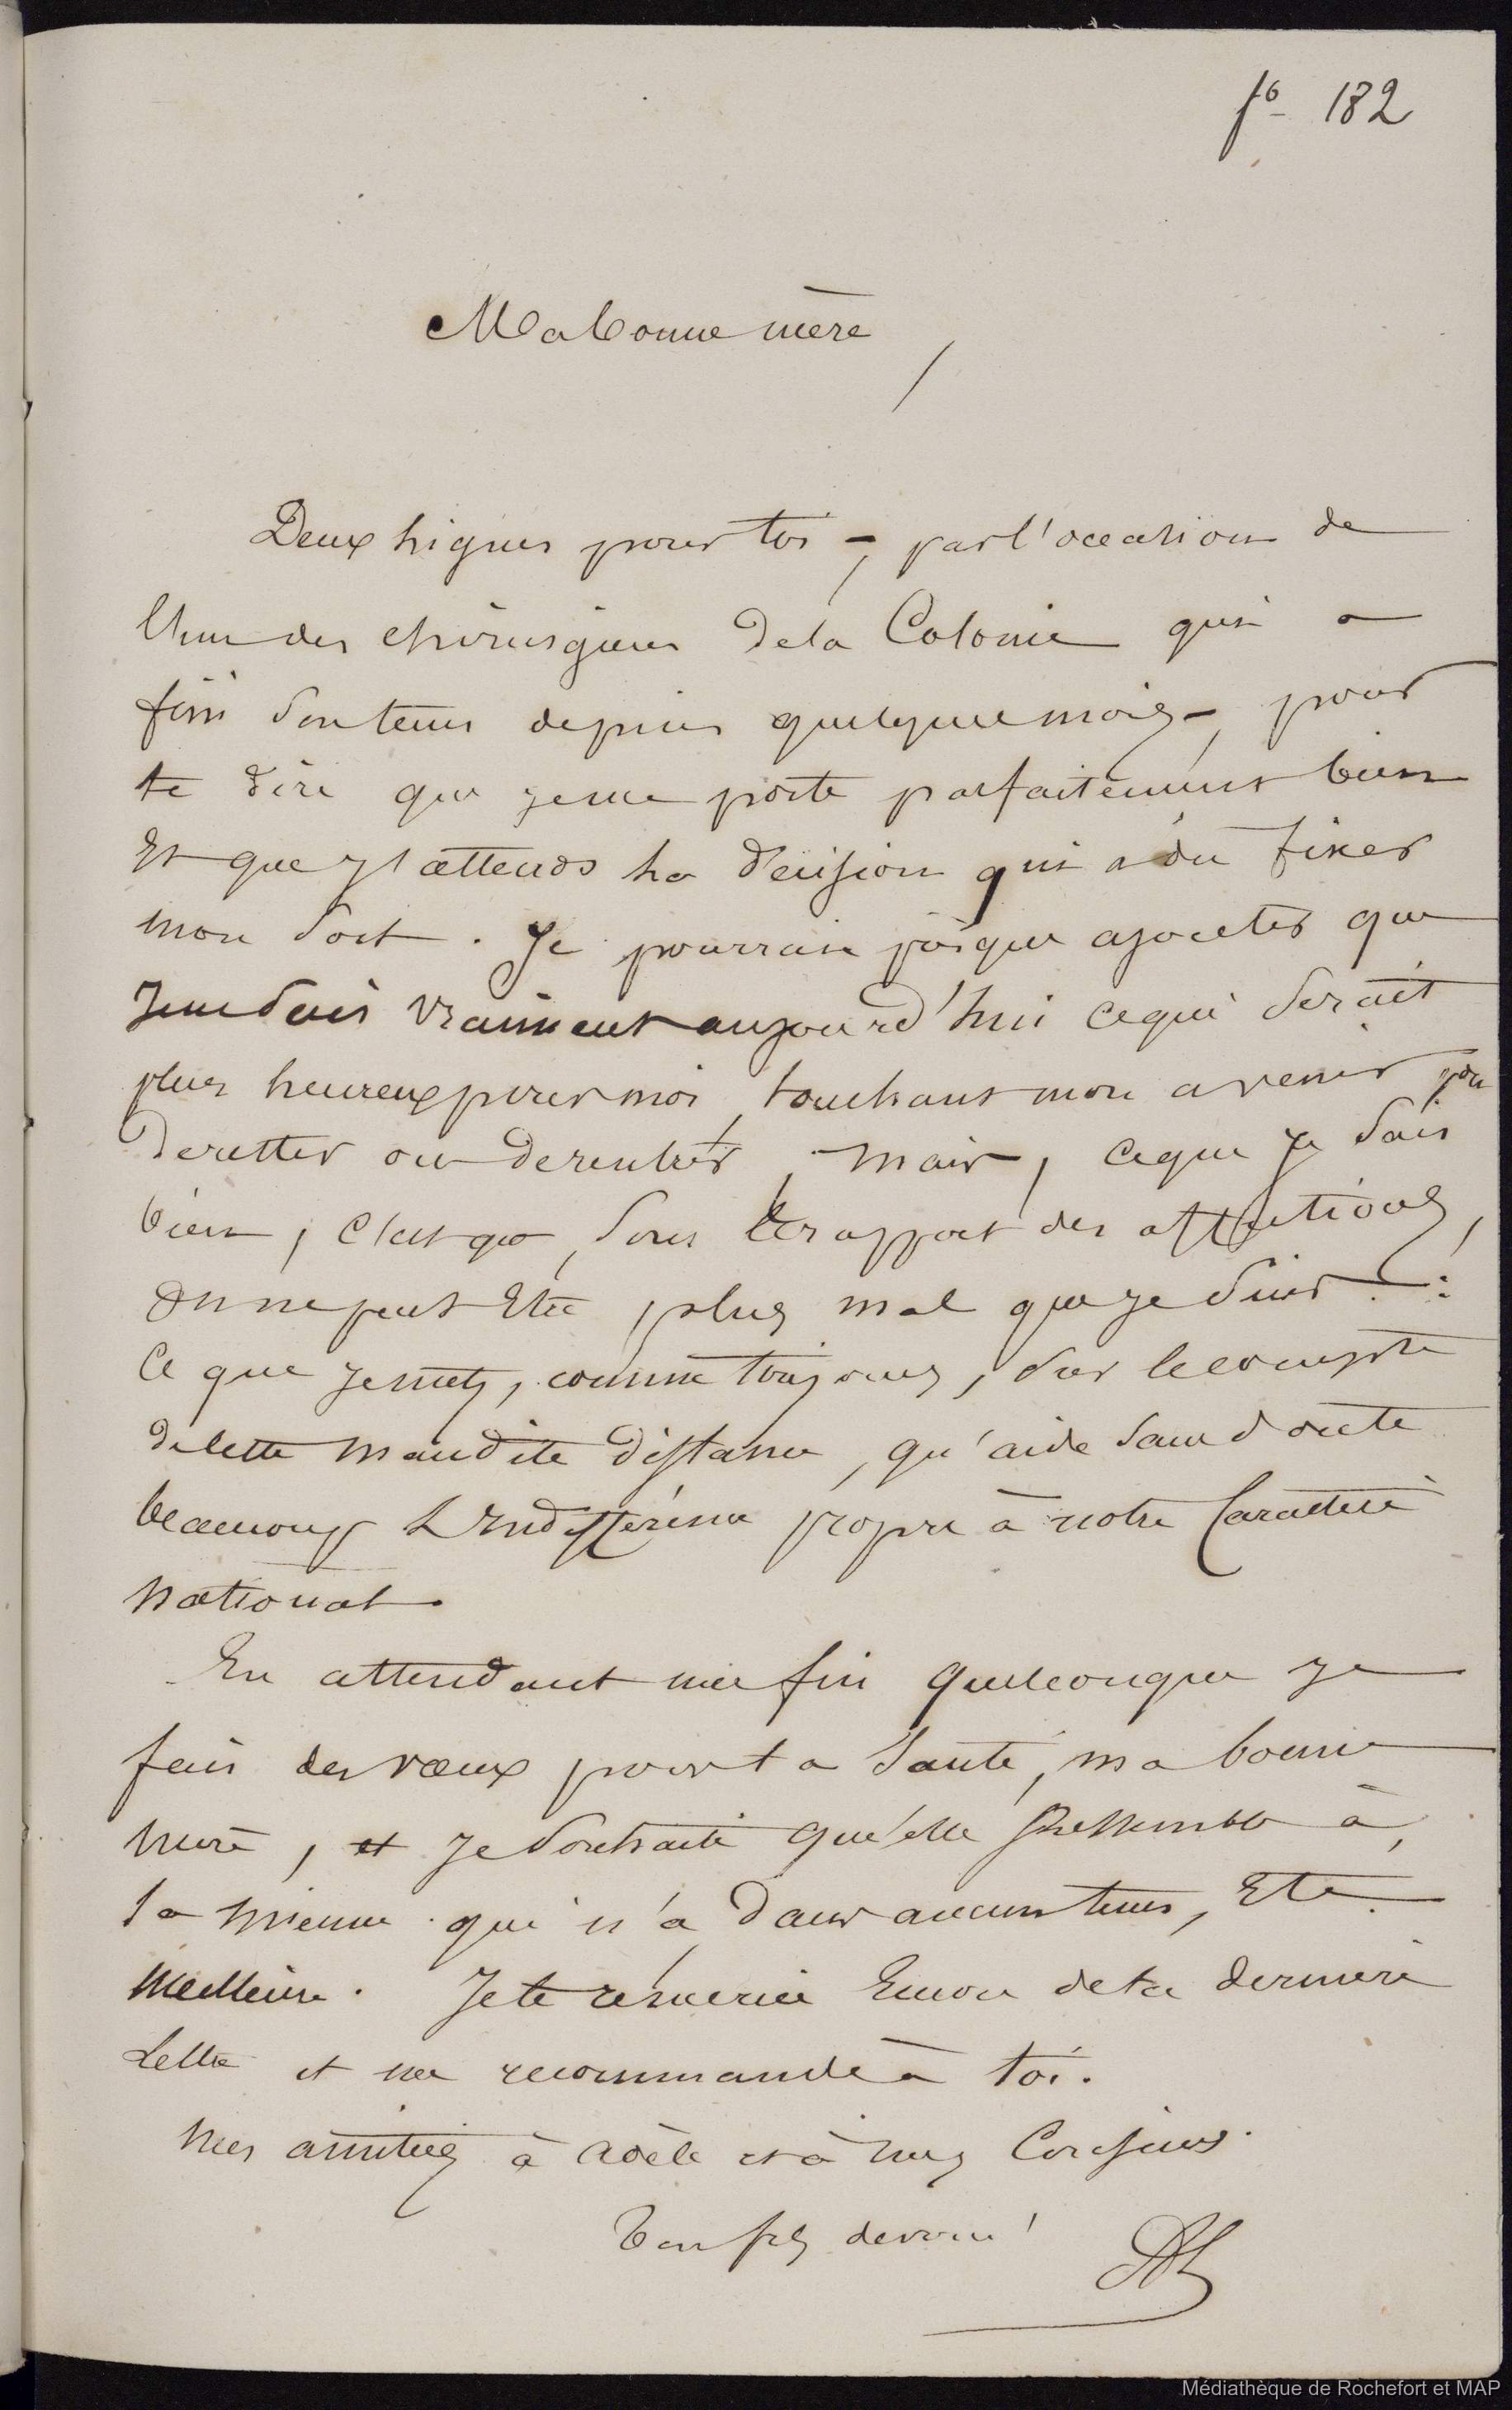 fo 182
Ma bonne mère,
Deux lignes pour toi -, par l'occasion de
l'un des chirurgiens de la Colonie qui a
fini son tems depuis quelques mois -, pour
te dire que je me porte parfaitement bien
Et que j'attends la décision qui a du fixer
mon sort. Je pourrais presque ajouter que
je ne sais vraiment aujourd'hui ce qui serait
plus heureux pour moi, touchant mon avenir, ou
de rester ou de rentrer, mais, ce que je sais
bien, c'est que, sous le rapport des affections,
on ne peut Etre plus mal que je suis :
Ce que je mets, comme toujours, sur le compte
de cette maudite distance, qu'aide sans doute
beaucoup L'indifférence propre à notre Caractère
national.
En attendant une fin quelconque je
fais des vœux pour ta santé, ma bonne
mère, et je souhaite qu'elle ressemble à
la mienne qui n'a dans aucun tems, Eté
meilleure. Je te remercie Encore de ta dernière
Lettre et me recommande à toi.
Mes amitiés à Adèle et à mes Cousines.
Ton fils dévoué
Médiathèque de Rochefort et MAP